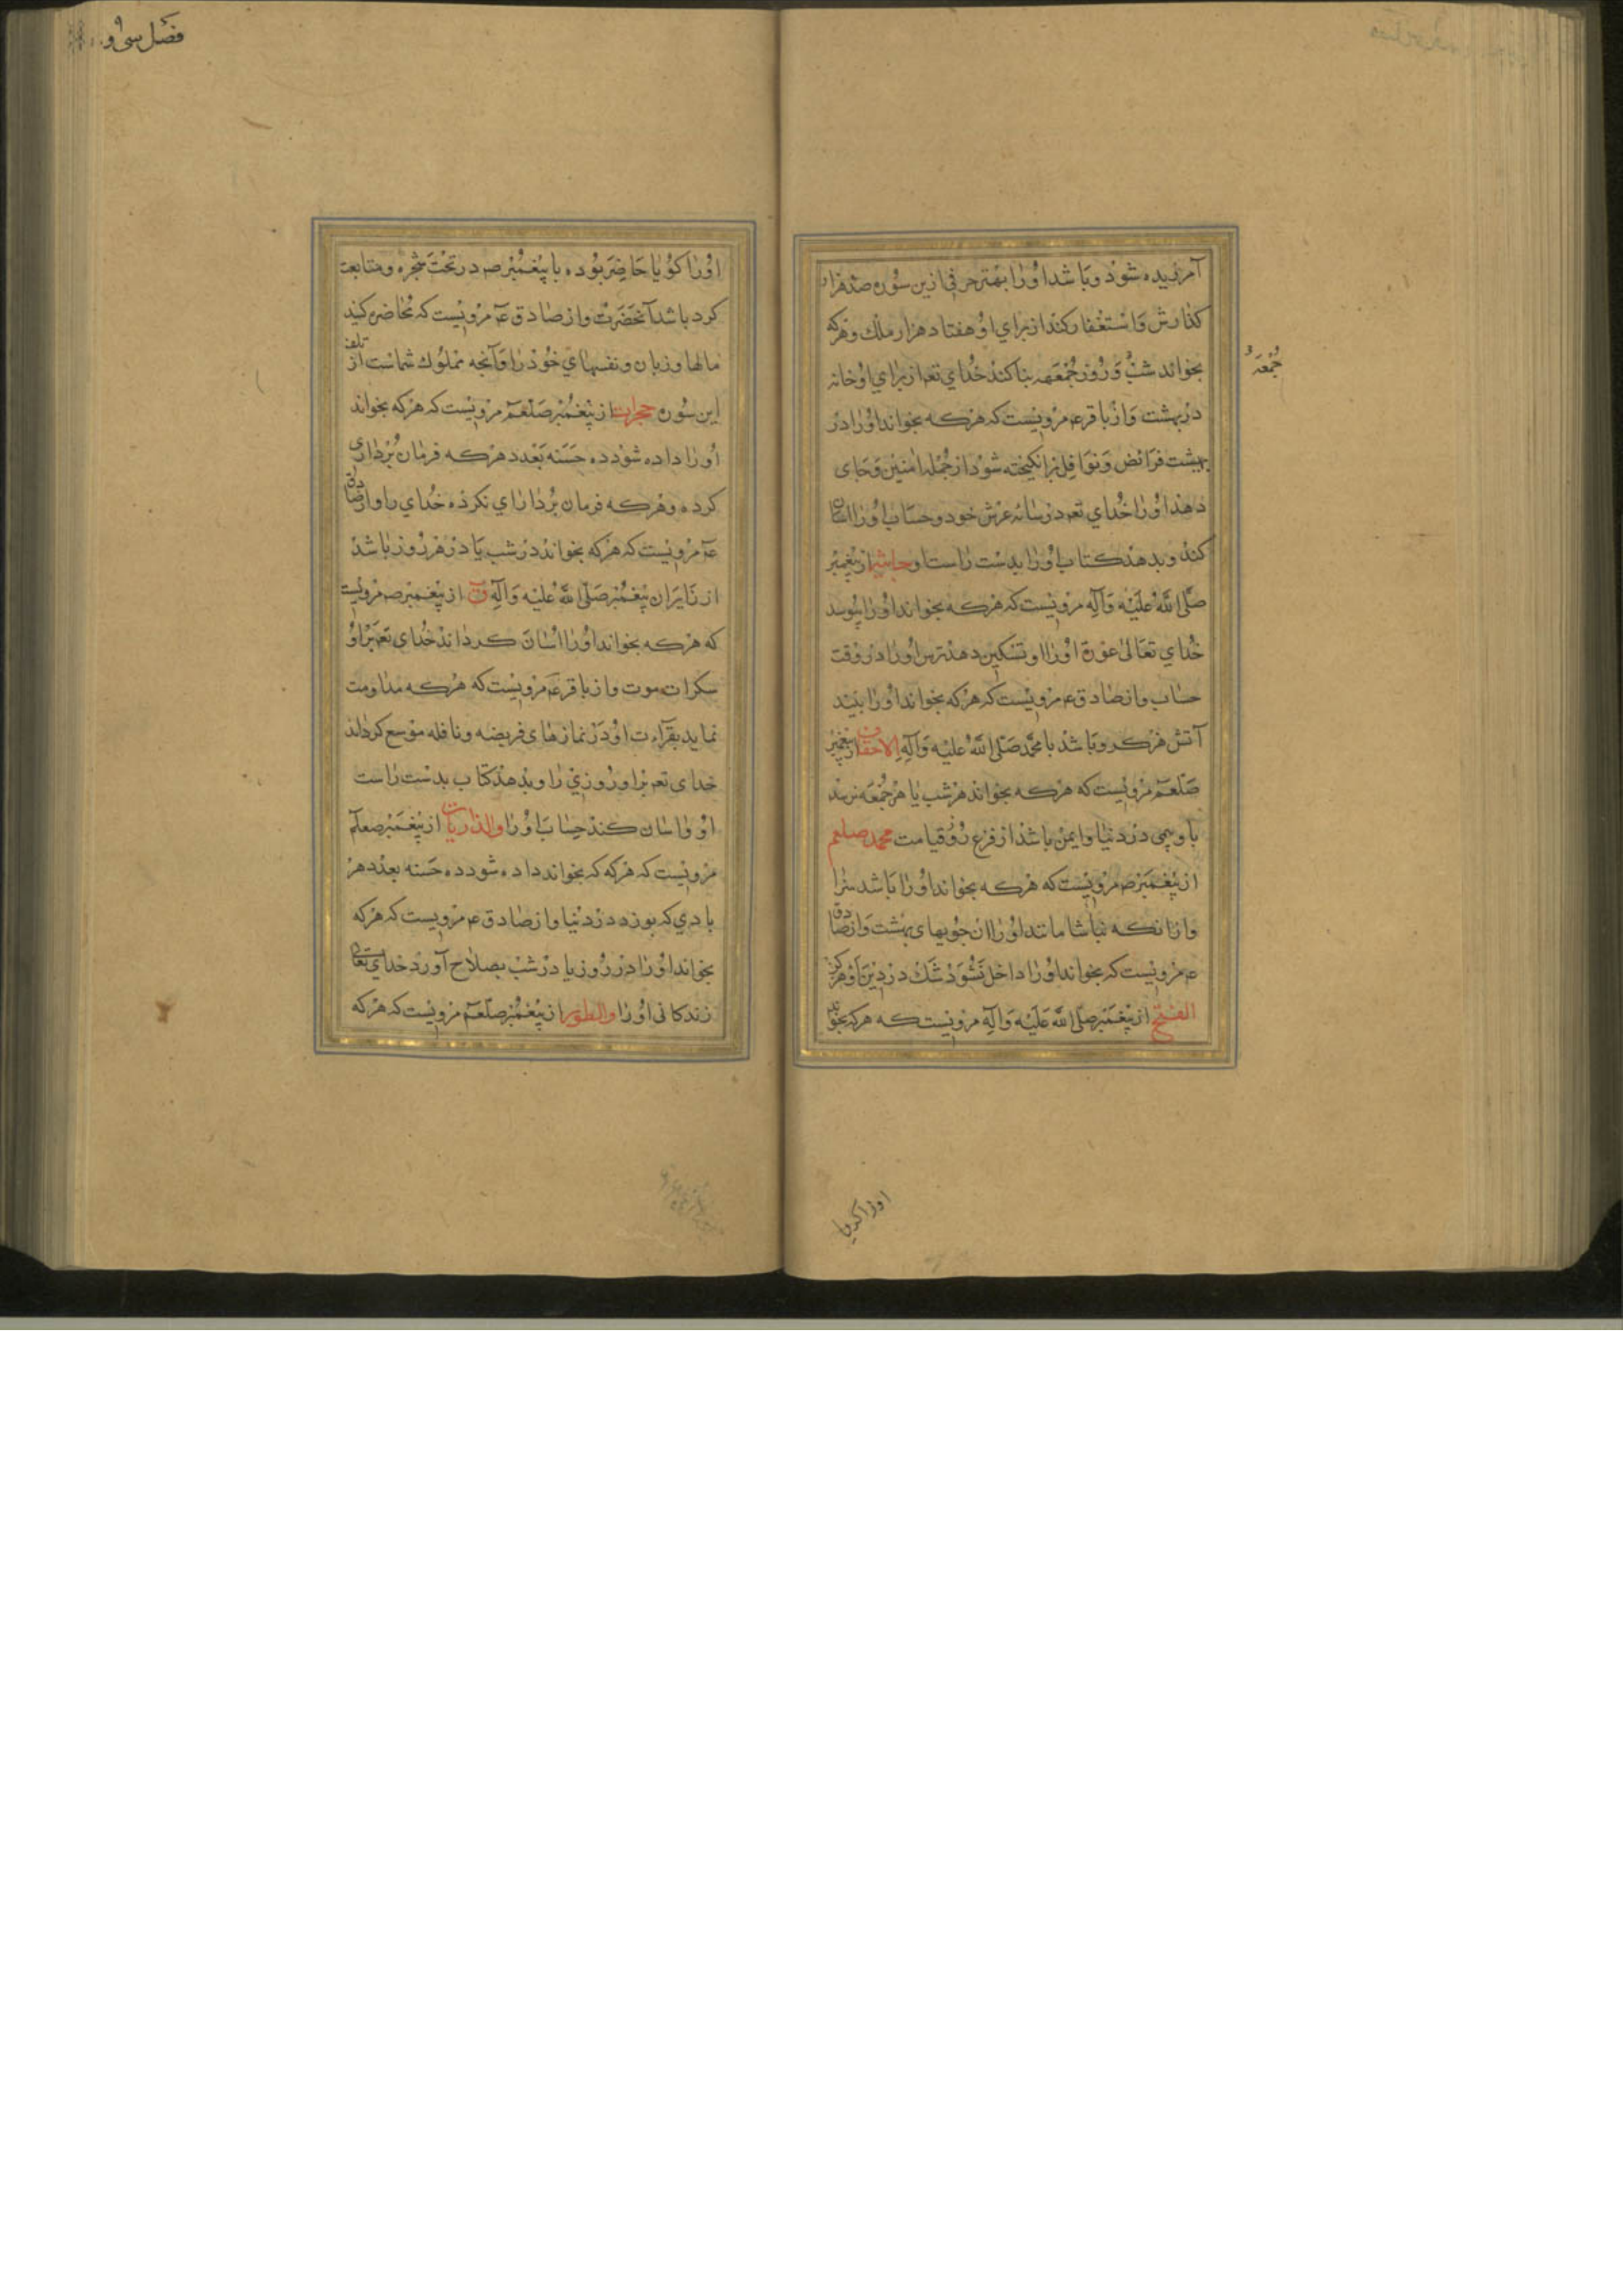 آمرزیده شود و باشد اورا بهتر حرفی ازین سوره صد هزار
کذارش و استغفار کنند از برای او هفتاد هزار ملک و هرکه
جُمْعَهٔ
بخواند شب و روز جمعه بنا کند خدای تع از برای او خانه
در بهشت و از باقر ع مرویست که هرکه بخواند اورا در
فرائض و نوافل برانکیخته شود از جمله امنین و جای
دهد اورا خدای تع در سایه عرش خود و حساب اورا اسان
کند و بدهد کتاب اورا بدست راست او جاثیه از پیغمبر
صلی الله علیه وآله مرویست که هرکه بخواند اورا بپوشد
خدای تعالی عورة اورا و تسکین دهد ترس اورا در وقت
حساب و از صادق ع مرویست که هرکه بخواند اورا نبیند
آتش هرکز و باشد با محمد صلی الله علیه وآله الاحقاف از پیغمبر
صلعم مرویست که هرکه بخواند هر شب یا هر جمعه نرسد
باو در دنیا و ایمن باشد از فزع روز قیامت محمد صلعم
از پیغمبر ص مرویست که هرکه بخواند اورا باشد سزا
وار انکه اورا از جویهای بهشت و از صادق
ع مرویست که بخواند اورا داخل نشود شک در دین او هرکز
الفتح از پیغمبر صلی الله علیه وآله مرویست که هرکه بخواند
اورا کویا
فصل سی و
اورا کویا حاضر بوده با پیغمبر ص در تحت شجره و متابعت
کرد باشد آنحضرت و از صادق ع مرویست که محاضره کنید
مالها و زنان و نفسهای خود را و آنچه مملوک شماست از تلف
این سوره حجرات از پیغمبر صلعم مرویست که هرکه بخواند
اورا داده شود ده حسنه بعدد هرکه فرمان برداری
کرده و هرکه فرمان برداری نکرده خدای را و از صادق
ع مرویست که هرکه بخواند در شب یا در هر روز باشد
از زایران پیغمبر صلی الله علیه وآله ق از پیغمبر ص مرویست
که هرکه بخواند اورا اسان کرداند خدای تع بر او
سکرات موت و از باقر ع مرویست که هرکه مداومت
نماید بقراءت او در نمازهای فریضه و نافله موسع کرداند
خدای تع بر او روزی را و بدهد کتاب بدست راست
او و اسان کند حساب اورا والذاریات از پیغمبر صلعم
مرویست که هرکه که بخواند داده شود ده حسنه بعدد هر
بادی که بوزد در دنیا و از صادق ع مرویست که هرکه
بخواند اورا در روز یا در شب بصلاح آورد خدای تعالی
زندکانی اورا والطور از پیغمبر صلعم مرویست که هرکه